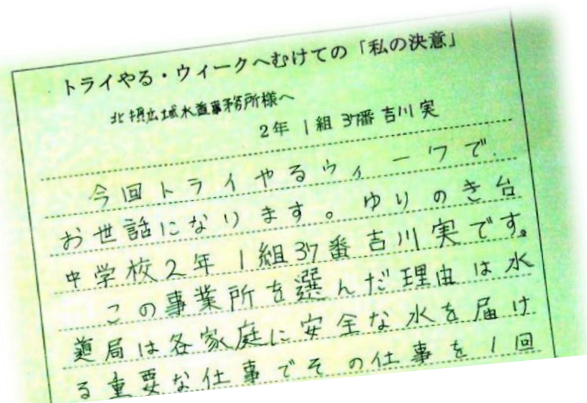 トライやる・ウィークへむけての「私の決意」
北摂広域水道事務所様へ
2年 1組 37番 吉川 実
今回トライやるウィークで、
お世話になります。ゆりのき台
中学校2年1組37番吉川実です。
この事業所を選んだ理由は水
道局は各家庭に安全な水を届け
る重要な仕事でその仕事を1回